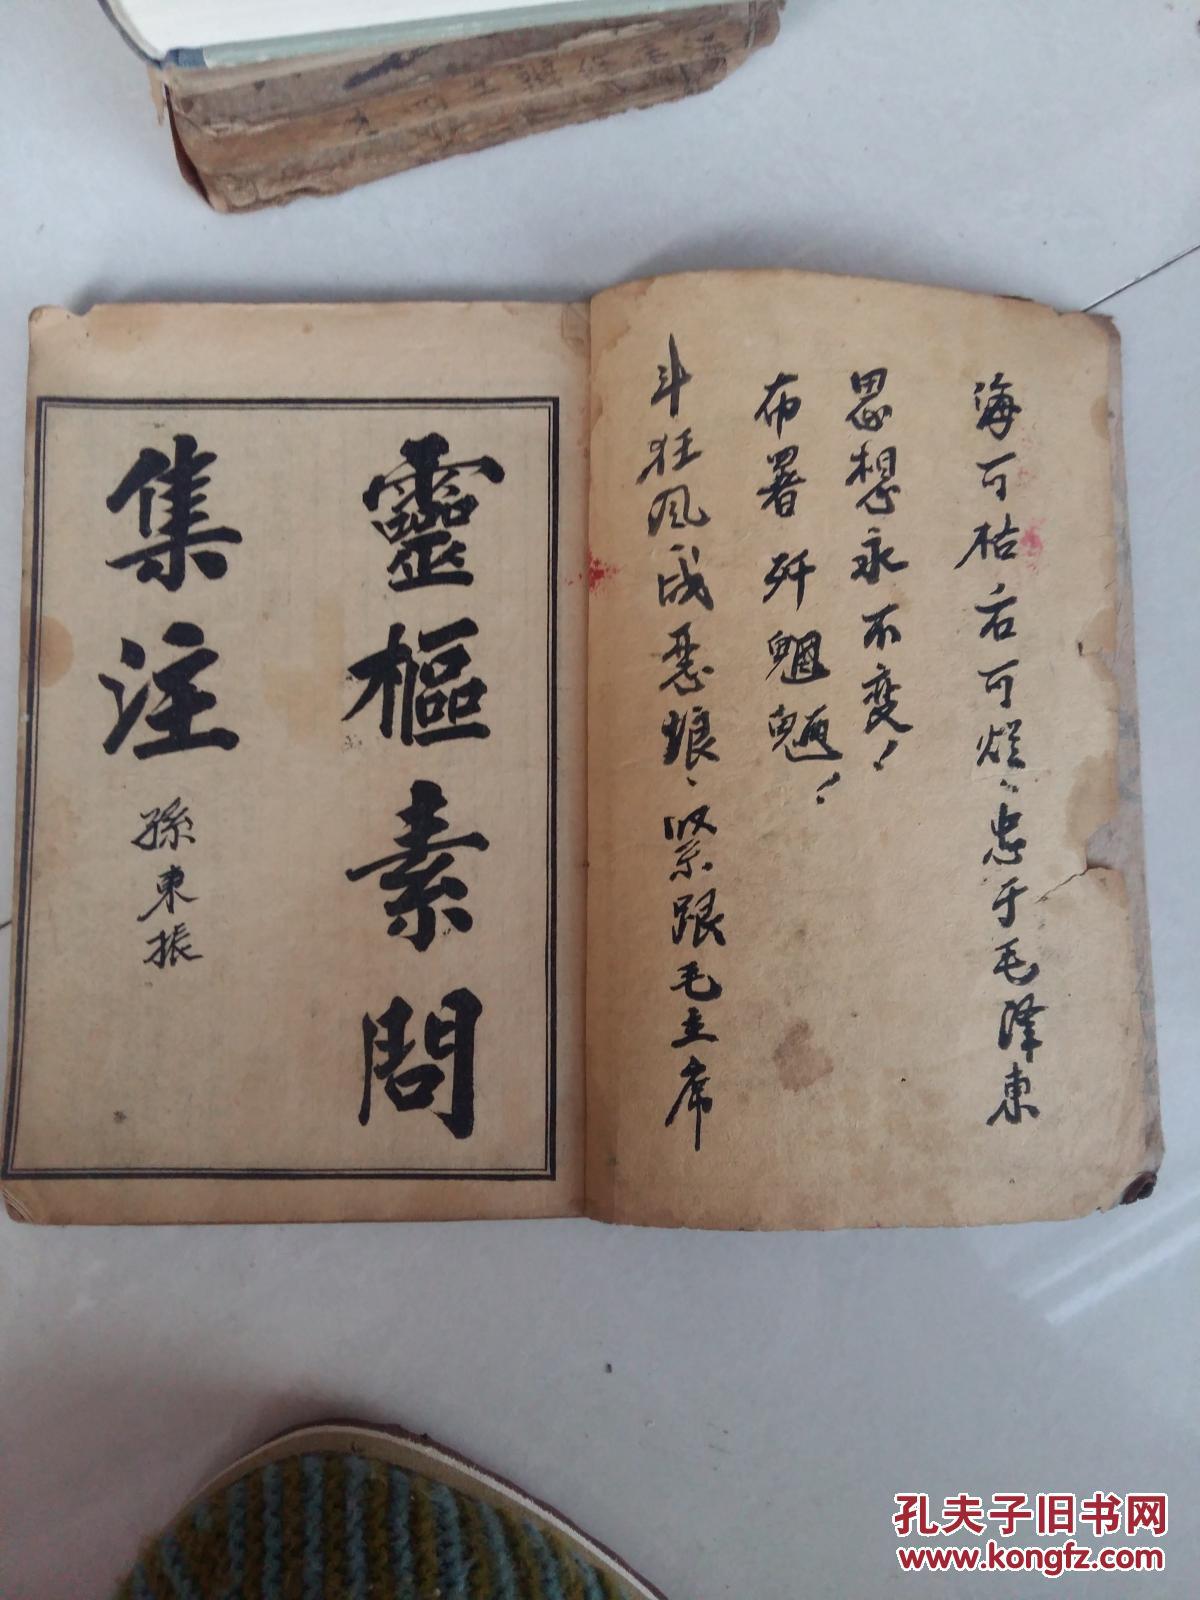 海可枯石可烂、忠于毛泽东
思想永不变!
布署歼魍魉!
斗狂风战恶浪、紧跟毛主席
靈樞素問
集注
孫東振
孔夫子旧书网
www.kongfz.com